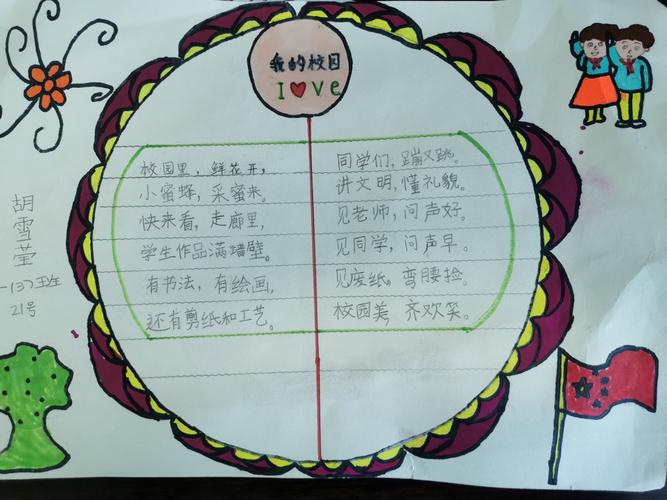 我的校园
I ❤ ve
校园里，鲜花开，
小蜜蜂，采蜜来。
快来看，走廊里，
学生作品满墙壁。
有书法，有绘画，
还有剪纸和工艺。
同学们，蹦又跳。
讲文明，懂礼貌。
见老师，问声好。
见同学，问声早。
见废纸，弯腰捡。
校园美，齐欢笑。
胡雪莹
一(3)班
21号